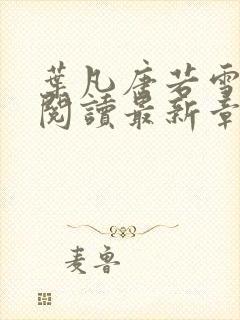 葉凡唐若雪
閱讀最新章
麦鲁